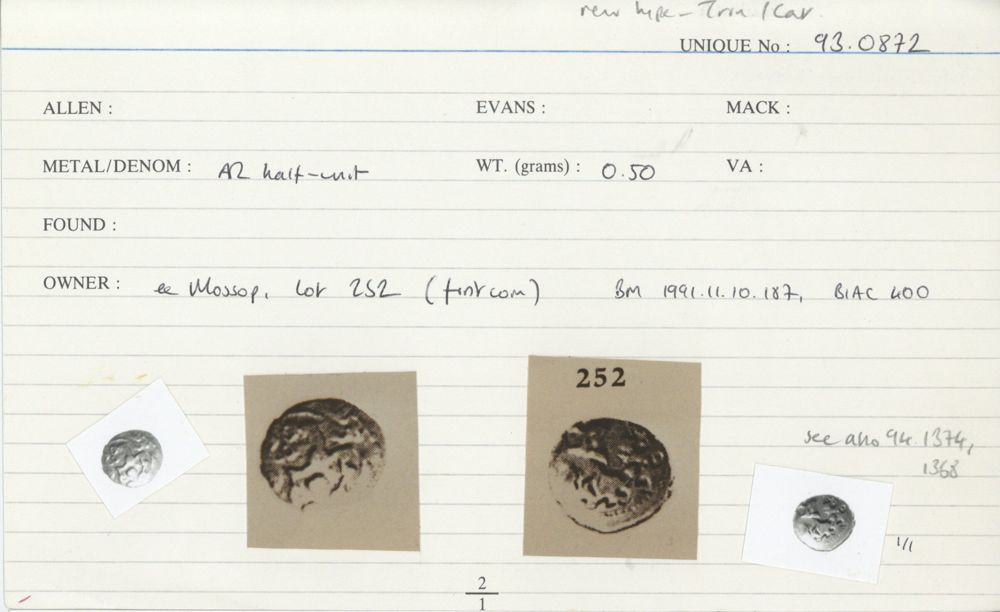 new type - Trin / Cat.
UNIQUE No : 93.0872
ALLEN : EVANS : MACK :
METAL/DENOM : AR half-unit WT. (grams) : 0.50 VA :
FOUND :
OWNER : ex Mossop, lot 252 (first coin) BM 1991.11.10.187, BIAC 400
252
see also 94.1374,
1368
1/1
2
1